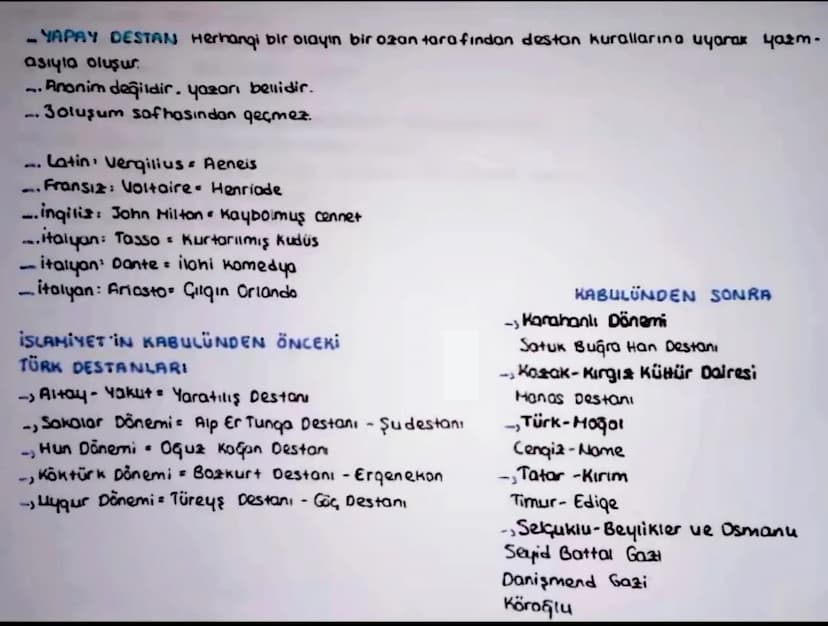 - YAPAY DESTAN Herhangi bir olayın bir ozan tarafından destan kurallarına uyarak yazm-
asıyla oluşur.
→ Anonim değildir. yazarı bellidir.
→ 3 oluşum safhasından geçmez.
→ Latin: Vergilius = Aeneis
→ Fransız: Voltaire = Henriade
→ İngiliz: John Milton = Kaybolmuş Cennet
→ İtalyan: Tasso = Kurtarılmış Kudüs
→ İtalyan: Dante = İlahi Komedya
→ İtalyan: Ariosto = Çılgın Orlando
İSLAMİYET'İN KABULÜNDEN ÖNCEKİ
TÜRK DESTANLARI
→ Altay - Yakut = Yaratılış Destanı
→ Sakalar Dönemi = Alp Er Tunga Destanı - Şu destanı
→ Hun Dönemi = Oğuz Kağan Destanı
→ Köktürk Dönemi = Bozkurt Destanı - Ergenekon
→ Uygur Dönemi = Türeyş Destanı - Göç Destanı
KABULÜNDEN SONRA
→ Karahanlı Dönemi
Satuk Buğra Han Destanı
→ Kazak - Kırgız Kültür Dairesi
Manas Destanı
→ Türk - Moğol
Cengiz - Name
→ Tatar - Kırım
Timur - Edige
→ Selçuklu - Beylikler ve Osmanlı
Seyid Battal Gazi
Danişmend Gazi
Köroğlu